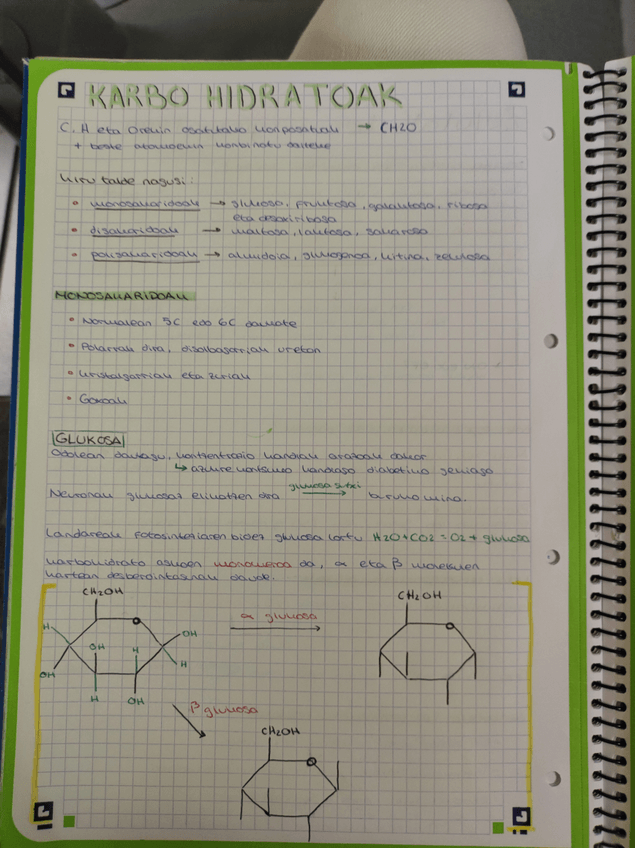 KARBO HIDRATOAK
C, H eta O-rekin osatutako konposatuak → CH2O
+ beste atomoekin konbinatu daiteke
Hiru talde nagusi:
• monosakaridoak → glukosa, fruktosa, galaktosa, ribosa
eta desoxiribosa
• disakaridoak → maltosa, laktosa, sakarosa
• polisakaridoak → almidoia, glukogenoa, kitina, zelulosa
MONOSAKARIDOAK
• Normalean 5C edo 6C dauzkate
• Polarrak dira, disolbagarriak uretan
• Kristalgarriak eta zuriak
• Gozoak
GLUKOSA
Odolean daukagu, kontzentrazio handiak arazoak dakar
↳ azukre kontsumo handiago diabetiko gehiago
Neuronak glukosaz elikatzen dira glukosa gutxi → buruko mina.
Landareak fotosintesiaren bidez glukosa lortu H2O+CO2 = O2 + glukosa
Karbohidrato askoen monomeroa da, α eta β molekulen
artean desberdintasunak daude.
CH2OH
O
H
OH
OH
H
H
OH
H
OH
α glukosa
CH2OH
O
β glukosa
CH2OH
O